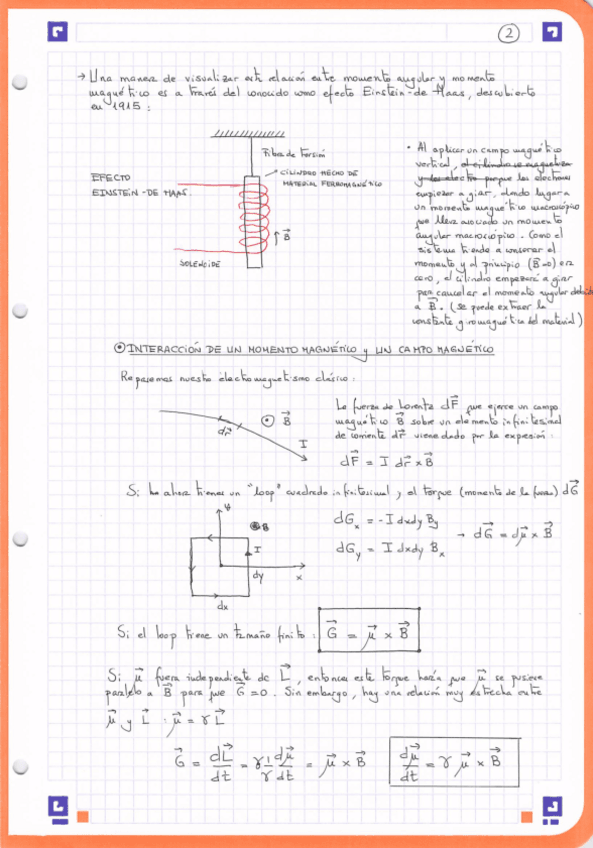 2
→ Una manera de visualizar esta relación entre momento angular y momento
magnético es a través del conocido como efecto Einstein-de Haas, descubierto
en 1915 :
Fibra de Torsión
CILINDRO HECHO DE
MATERIAL FERROMAGNÉTICO
EFECTO
EINSTEIN-DE HAAS.
B⃗
SOLENOIDE
• Al aplicar un campo magnético
vertical, el cilindro se magnetiza
y los electro porque los electrones
empiezan a girar, dando lugar a
un momento magnético macroscópico
que lleva asociado un momento
angular macroscópico. Como el
sistema tiende a conservar el
momento y al principio (B⃗=0) era
cero, el cilindro empezará a girar
para cancelar el momento angular debido
a B⃗. (se puede extraer la
constante giromagnética del material)
⊙ INTERACCIÓN DE UN MOMENTO MAGNÉTICO y UN CAMPO MAGNÉTICO
Repasemos nuestro electromagnetismo clásico:
dr⃗
B⃗
I
La fuerza de Lorentz dF⃗ que ejerce un campo
magnético B⃗ sobre un elemento infinitesimal
de corriente dr⃗ viene dado por la expresión:
dF⃗ = I dr⃗ × B⃗
Si ahora tienes un "loop" cuadrado infinitesimal, el torque (momento de la fuerza) dG⃗
y
B
I
dy
x
dx
dGx = -I dxdy By
dGy = I dxdy Bx
→ dG⃗ = dμ⃗ × B⃗
Si el loop tiene un tamaño finito : G⃗ = μ⃗ × B⃗
Si μ⃗ fuera independiente de L⃗, entonces este torque haría que μ⃗ se pusiera
paralelo a B⃗ para que G⃗=0. Sin embargo, hay una relación muy estrecha entre
μ⃗ y L⃗ : μ⃗ = γ L⃗
G⃗ = dL⃗/dt = γ 1/γ dμ⃗/dt = μ⃗ × B⃗
dμ⃗/dt = γ μ⃗ × B⃗